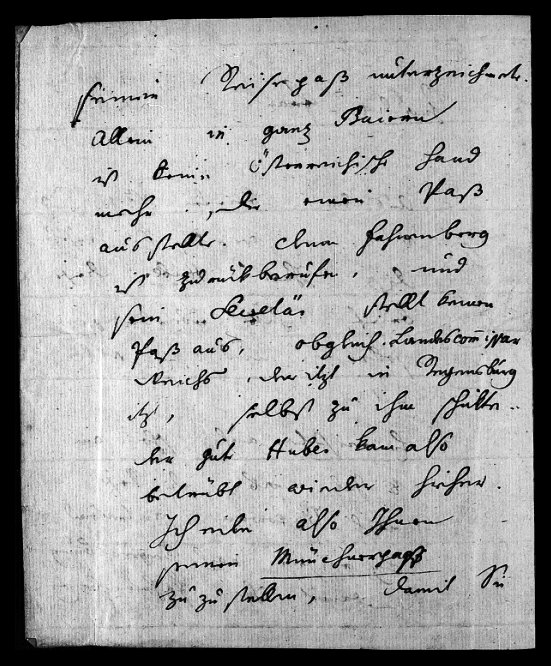 seinen Reisepaß unterzeichnete.
Allein in ganz Baiern
ist keine Österreichische Hand
mehr, die einen Paß
ausstellte. denn Fahnenberg
ist zurükberufen, und
sein Secretär stellt keinen
Paß aus, obgleich Landescommissar
Reichs der itzt in Regensburg
ist, selbst zu ihm schikte.
der gute Huber kam also
betrübt wieder hieher.
Ich eile also Ihnen
seinen Münchnerpaß
zuzustellen, damit Sie